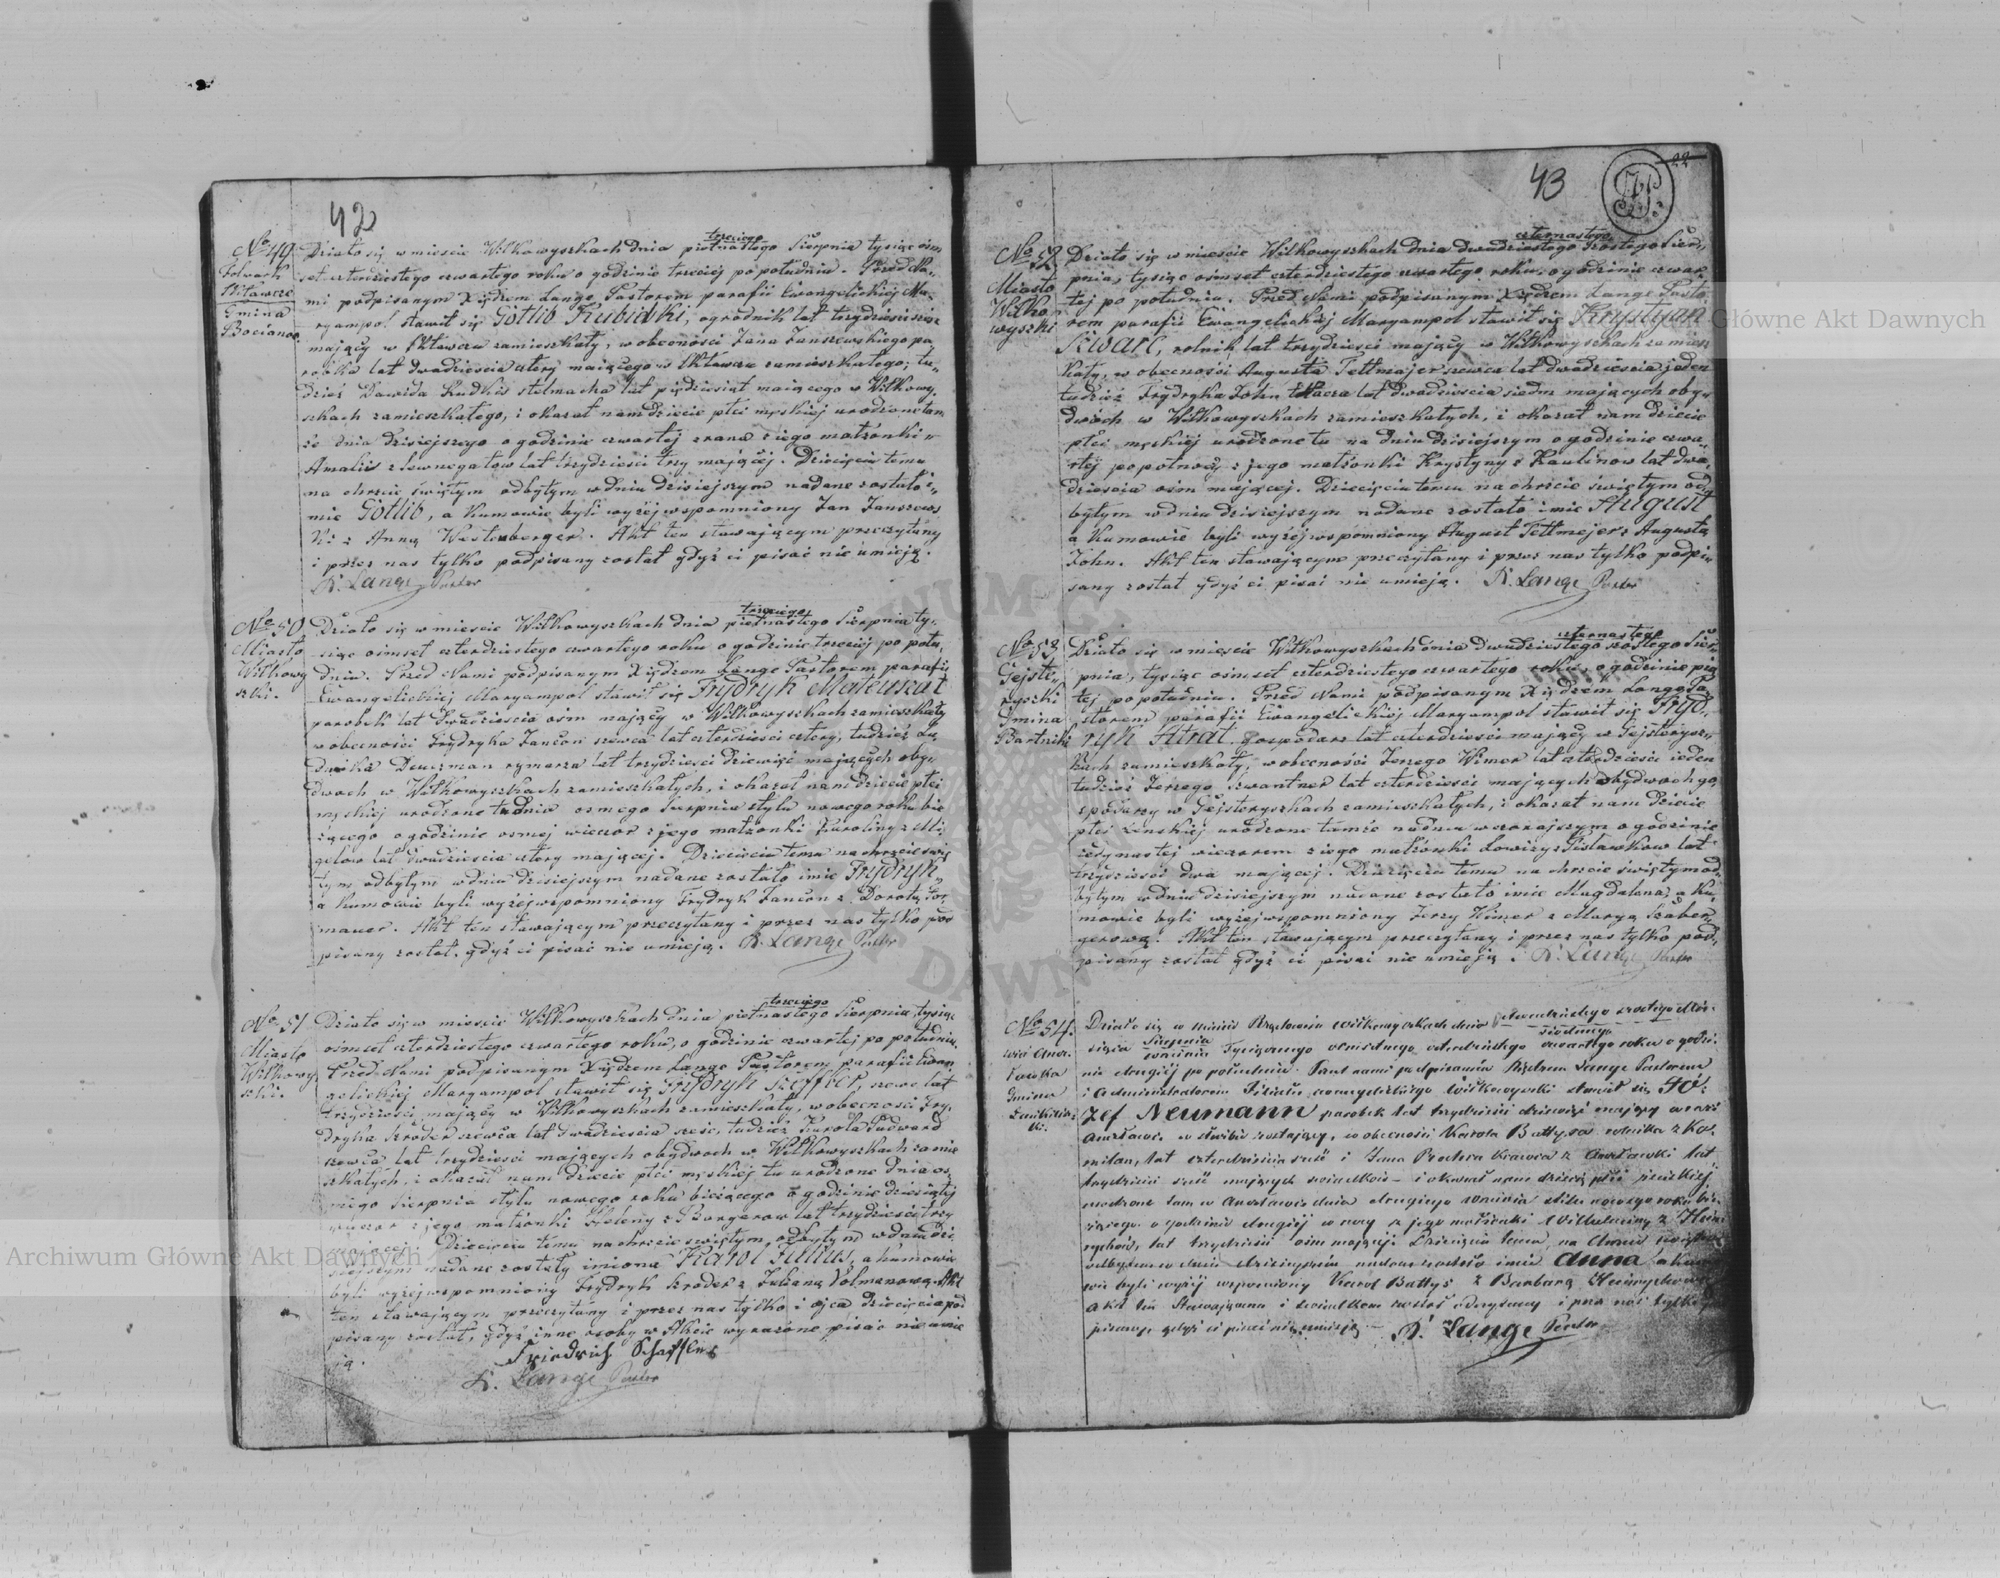 42
No 49
Folwark
Gmina
Działo się w mieście Wiłkowyszkach dnia trzeciego piętnastego Sierpnia tysiąc ośm
set czterdziestego czwartego roku o godzinie trzeciej po południu. Przed Na„
mi podpisanym Xiędzem Lange Pastorem parafii Ewangelickiej Ma„
ryampol stawił się Gotlib, ogrodnik lat trzydzieści
mający w zamieszkały, w obecności Jana Januszewskiego pa„
robka lat dwadzieścia cztery mającego w zamieszkałego; tu„
dzież Dawida stelmacha lat pięćdziesiąt mającego w Wiłkowy„
szkach zamieszkałego, i okazał nam dziecię płci męskiej urodzone tam„
że dnia dzisiejszego o godzinie czwartej zrana z jego małżonki
Amalii z lat trzydzieści trzy mającej. Dziecięciu temu
na chrzcie świętym odbytym w dniu dzisiejszym nadane zostało i„
mie Gotlib, a kumowie byli wyżej wspomniony Jan
z Anną. Akt ten stawającym przeczytany
i przez nas tylko podpisany został gdyż ci pisać nie umieją.
R. Lange Pastor
No 50
Miasto
Wiłkowy
szki.
Działo się w mieście Wiłkowyszkach dnia trzeciego piętnastego Sierpnia ty„
siąc ośmset czterdziestego czwartego roku o godzinie trzeciej po połu„
dniu. Przed Nami podpisanym Xiędzem Lange Pastorem parafii
Ewangelickiej Maryampol stawił się Frydryk Mateuszat
parobek lat dwadzieścia ośm mający w Wiłkowyszkach zamieszkały
w obecności Frydryka szewca lat czterdzieści cztery, tudzież Lu„
dwika rymarza lat trzydzieści dziewięć mających oby„
dwoch w Wiłkowyszkach zamieszkałych, i okazał nam dziecię płci
męskiej urodzone tu dnia osmego Sierpnia stylu nowego roku bie
żącego o godzinie osmej wieczor z jego małżonki Karoliny z Mi„
gelow lat dwadzieścia cztery mającej. Dziecięciu temu na chrzcie świę
tym odbytym w dniu dzisiejszym nadane zostało imie Frydryk„
a kumowie byli wyżej wspomniony Frydryk z Dorotą
Akt ten stawającym przeczytany i przez nas tylko pod
pisany został, gdyż ci pisać nie umieją. R. Lange Pastor
No 51
Miasto
Wiłkowy
szki.
Działo się w mieście Wiłkowyszkach dnia trzeciego piętnastego Sierpnia, tysiąc
ośmset czterdziestego czwartego roku, o godzinie czwartej po południu.
Przed Nami podpisanym Xiędzem Lange Pastorem parafii Ewan
gelickiej Maryampol stawił się Frydryk Szeffler, szewc lat
trzydzieści mający w Wiłkowyszkach zamieszkały, w obecności Fry„
dryka Kroder szewca lat dwadzieścia sześć, tudzież Karola
szewca lat trzydzieści mających obydwoch w Wiłkowyszkach zamie
szkałych, i okazał nam dziecię płci męskiej tu urodzone dnia os„
mego Sierpnia stylu nowego roku bieżącego o godzinie dziesiątej
wieczor z jego małżonki Heleny z Bergerow lat trzydzieści trzy
mającej. Dziecięciu temu na chrzcie świętym, odbytym w dniu dzi„
siejszym nadane zostały imiona Karol Julius, a kumowie
byli wyżej wspomniony Frydryk Kroder z Julianą Akt
ten stawającym przeczytany i przez nas tylko i ojca dziecięcia pod
pisany został, gdyż inne osoby w Akcie wyrażone pisać nie umie
ją.
Friedrich Schäffler
R. Lange Pastor
43
22
No 52
Miasto
Wiłko„
wyszki
Działo się w mieście Wiłkowyszkach dnia czternastego dwudziestego szóstego Sier„
pnia, tysiąc ośmset czterdziestego czwartego roku, o godzinie czwar„
tej po południu. Przed Nami podpisanym Xiędzem Lange Pasto„
rem parafii Ewangelickiej Maryampol stawił się Krystyan
Szwarc, rolnik lat trzydzieści mający w Wiłkowyszkach zamiesz
kały, w obecności Augusta Tettmajer szewca lat dwadzieścia jeden
tudzież Frydryka John tkacza lat dwadzieścia siedm mających oby„
dwóch w Wiłkowyszkach zamieszkałych, i okazał nam dziecię
płci męskiej urodzone tu na dniu dzisiejszym o godzinie czwa„
rtej po połnocy, z jego małżonki Krystyny z lat dwa„
dzieścia ośm mającej. Dziecięciu temu na chrzcie świętym od„
bytym w dniu dzisiejszym nadane zostało imie August
a Kumowie byli wyżej wspomniony August Tettmejer z Augustą
John. Akt ten stawającym przeczytany i przez nas tylko podpi„
sany został gdyż ci pisać nie umieją. R. Lange Pastor
No 53
Gejste„
ryszki
Gmina
Bartniki
Działo się w mieście Wiłkowyszkach dnia czternastego Dwudziestego szóstego Sier„
pnia, tysiąc ośmset czterdziestego czwartego roku, o godzinie pią„
tej po południu. Przed Nami podpisanym Xiędzem Lange Pa„
storem parafii Ewangelickiej Maryampol stawił się Fryd„
ryk gospodarz lat czterdzieści mający w Gejsterysz„
kach zamieszkały, w obecności Jerzego Wimer lat czterdzieści jeden
tudzież Jerzego lat czterdzieści mających obydwoch go„
spodarzy w Gejsteryszkach zamieszkałych, i okazał nam dziecię
płci żeńskiej urodzone tamże na dniu wczorajszym o godzinie
jedynastej wieczorem z jego małżonki Lowizy z lat
trzydzieści dwa mającej. Dziecięciu temu na chrzcie świętym od„
bytym w dniu dzisiejszym nadane zostało imie Magdalena, a Ku„
mowie byli wyżej wspomniony Jerzy Wimer z Maryą
Akt ten stawającym przeczytany i przez nas tylko pod„
pisany został gdyż ci pisać nie umieją. R. Lange Pastor
No 54.
Gmina
Działo się w mieście Wiłkowyszkach dnia dwudziestego szóstego
Sierpnia Września Tysiącznego ośmsetnego czterdziestego czwartego roku o godzi„
nie drugiej po południu. Przed nami podpisanym Xiędzem Lange Pastorem
i Administratorem Wiłkowyszki stawił się Jó„
zef Neumann parobek lat trzydzieści dziewięć mający
w służbie zostający, w obecności Karola Battysa rolnika z
lat czterdzieści sześć i Jana krawca z lat
trzydzieści sześć mających świadków i okazał nam dziecię płci żeńskiej
urodzone tam w dnia drugiego Września stilu nowego roku bie„
żącego o godzinie drugiej w nocy z jego małżonki Wilhelminy z
lat trzydzieści ośm mającej. Dziecięciu temu na chrzcie świętym
odbytym w dniu dzisiejszym nadane zostało imie Anna a kumo
wie byli wyżej wspomniony Karol Battys z Barbarą
Akt ten stawającemu i świadkom został odczytany i przez nas tylko pod
pisany, gdyż ci pisać nie umieją. R. Lange Pastor
Archiwum Główne Akt Dawnych
Archiwum Główne Akt Dawnych